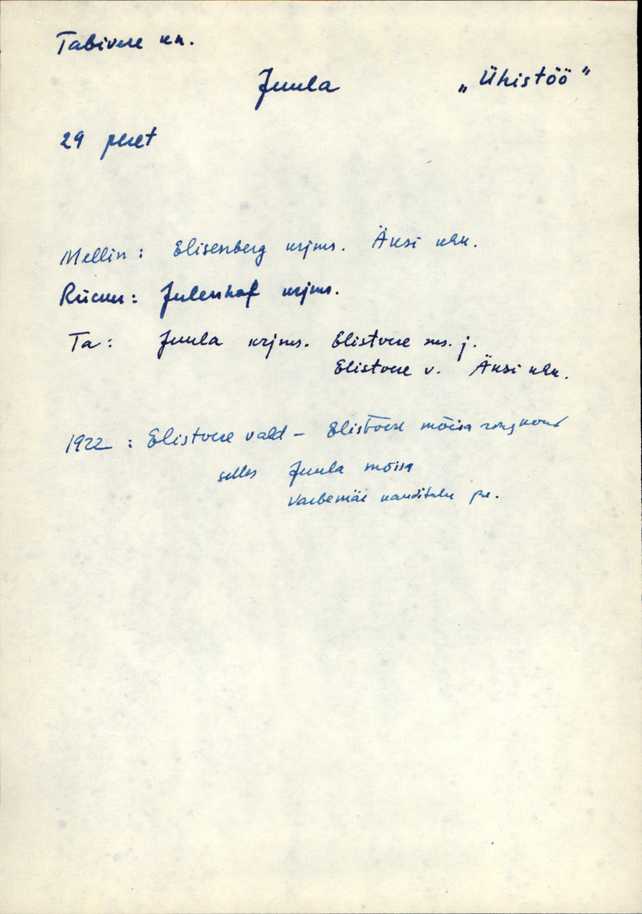 Tabivere kn.
Juula „Ühistöö"
29 peret
Mellin: Elisenberg krjms. Äksi khk.
Rücker: Julenhof krjms.
Ta: Juula krjms. Elistvere ms. j.
Elistvere v. Äksi khk.
1922: Elistvere vald – Elistvere mõisa ringkond
selles Juula mõisa
Vaibemäe kandi